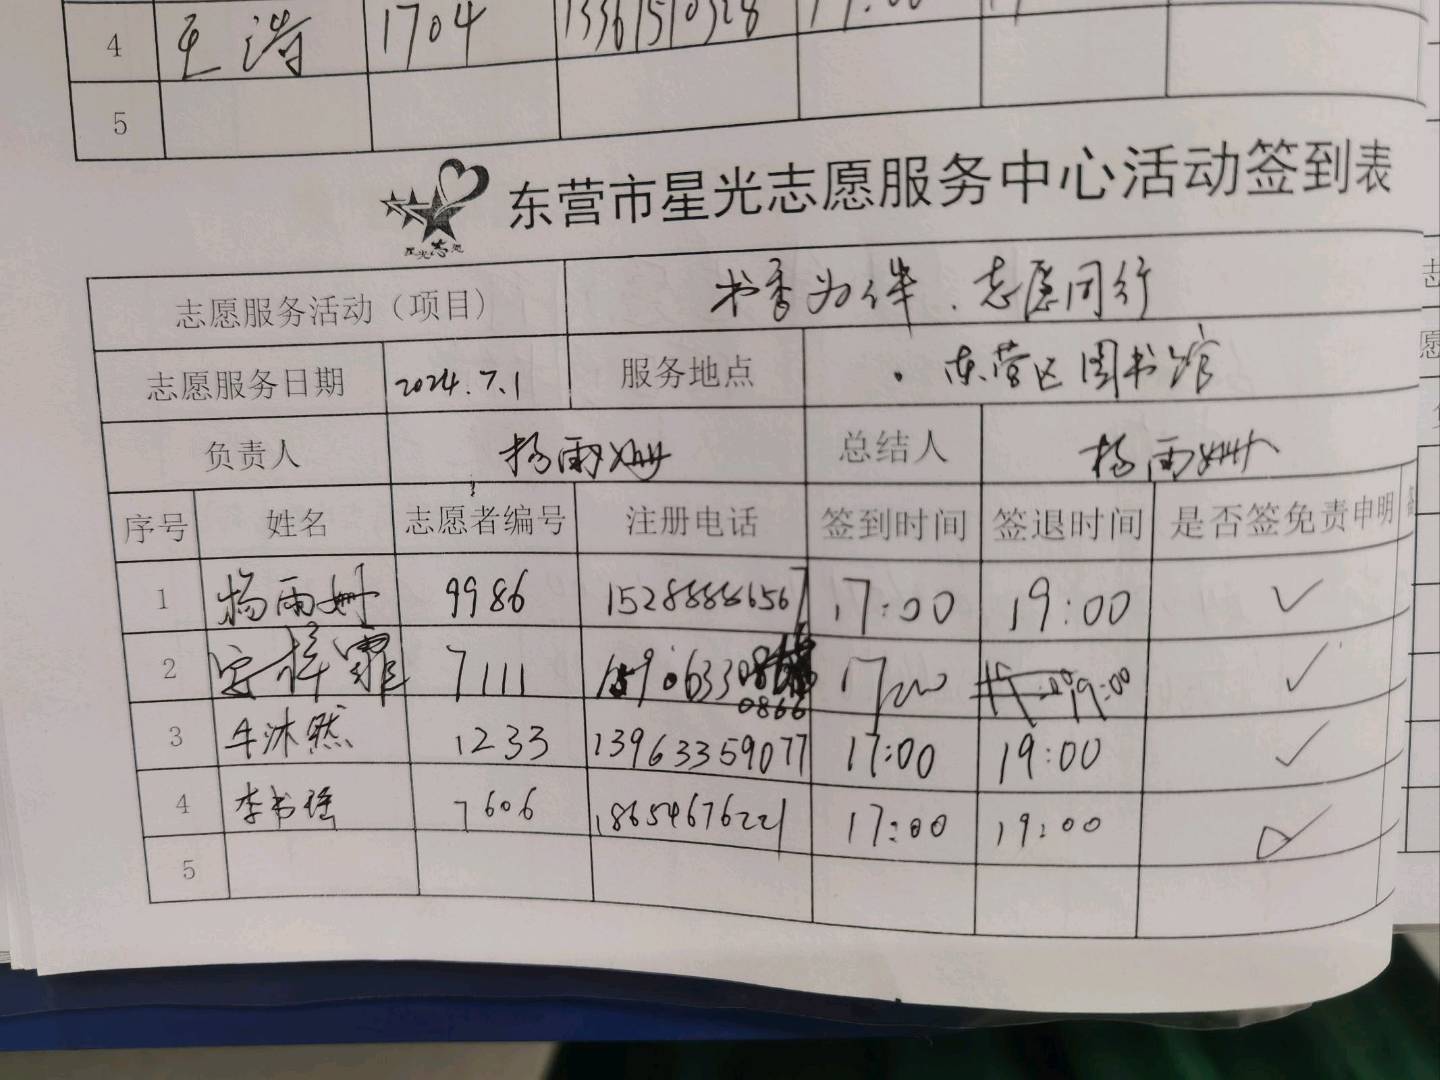 4 王涛 1704 13361510328
5
星光志愿
东营市星光志愿服务中心活动签到表
志愿服务活动（项目） 书香为伴.志愿同行
志愿服务日期 2024.7.1 服务地点 东营区图书馆
负责人 杨雨姗 总结人 杨雨姗
序号 姓名 志愿者编号 注册电话 签到时间 签退时间 是否签免责申明
1 杨雨姗 9986 17:00 19:00 ✓
2 安梓霏 7111 0866 17:00 19:00 ✓
3 牛沐然 1233 13963359077 17:00 19:00 ✓
4 李书瑶 7606 18654676221 17:00 19:00 ✓
5